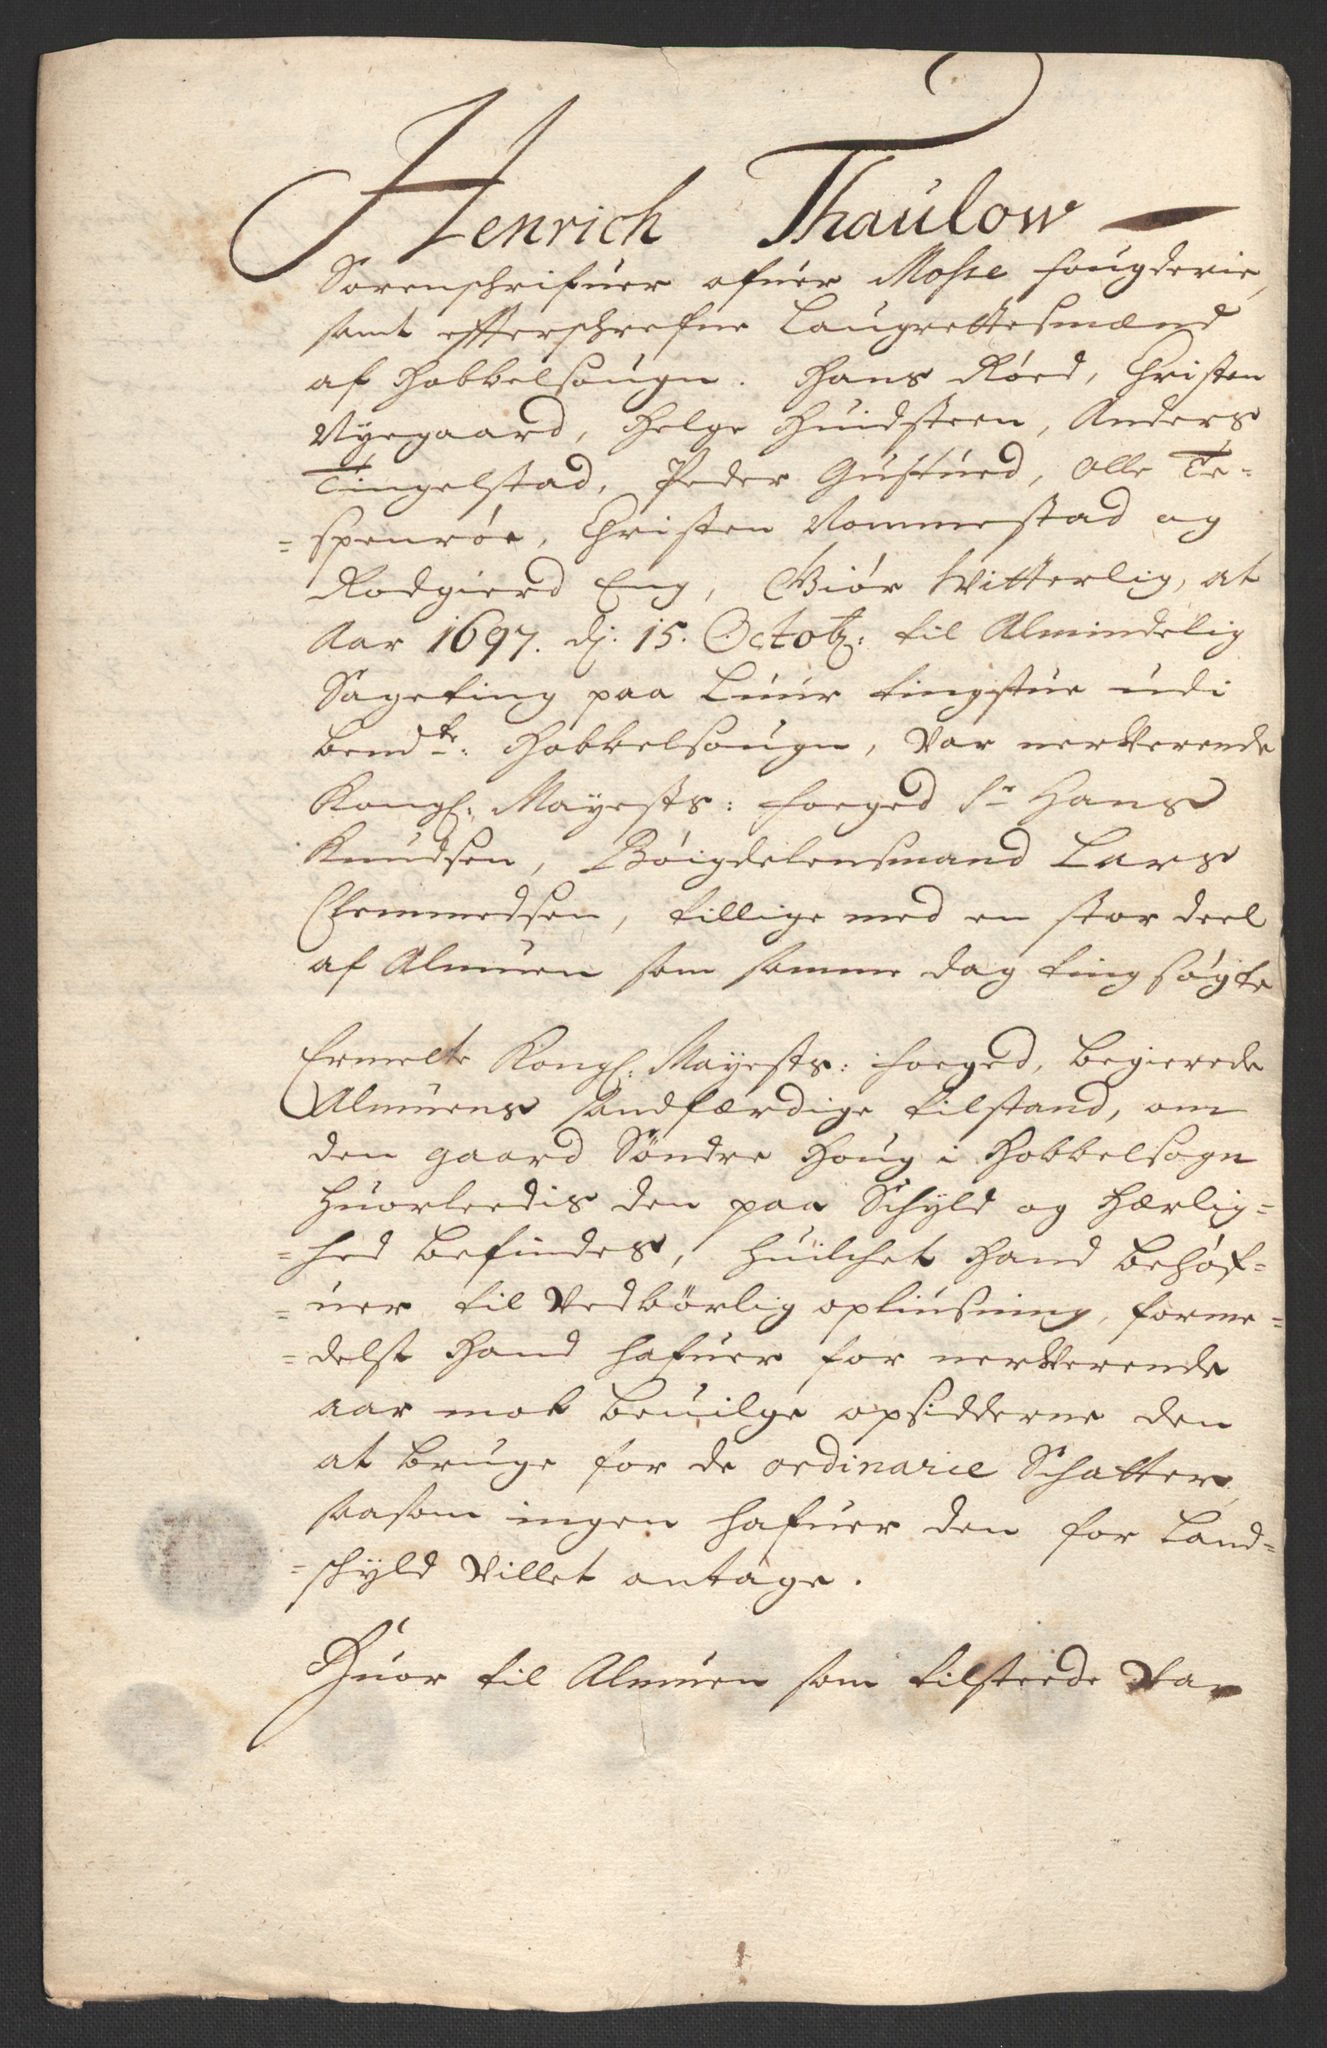 Henrich Thaulow
Sorenschrifuer ofuer Mosse fougderie,
samt effterschrefne Laugrettesmænd
af Hobbelsougn. Hans Røed, Christen
Nyegaard, Helge Huidsteen, Anders
Tingelstad, Peder Gustued, Olle Te-
=spenrøe, Christen Rommestad og
Rodgierd Eng, Giør Witterlig, at
Aar 1697. dj. 15. Octobr: til Almindelig
Sageting paa Luur tingstue udi
bemdte: Hobbelsougn, var nerverende
Kongl: Mayests: foeged Sr Hans
Knudsen, Bøigdelensmand Lars
Clemmedsen, tillige med en stor deel
af Almuen som samme dag ting søgte
Ermelte Kongl: Mayests: foeged, begierede
Almuens sandfærdige tilstand, om
den gaard Søndre Houg i Hobbelsogn
huorleedis den paa Schyld og Hærlig=
=hed befindes, huilchet Hand behøf=
=uer til Vedbørlig opliusning, forme=
=delst Hand hafuer for nerverende
aar mot beuilge opsidderne den
at bruge for de ordinarie Schatter,
saasom ingen hafuer den for Land=
=schyld Villet antage.
Huor til Almuen som tilsteede Var